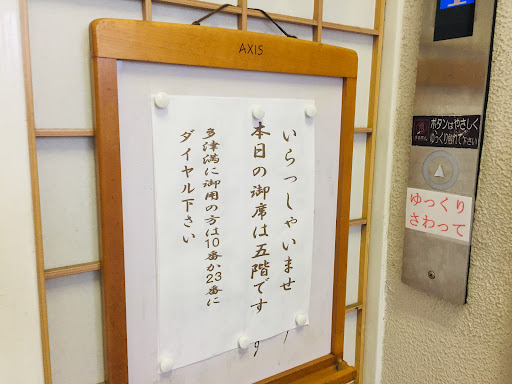 AXIS
いらっしゃいませ
本日の御席は五階です
多津満に御用の方は10番か23番に
ダイヤル下さい
ボタンはやさしく
ゆっくり触れて下さい
ゆっくり
さわって